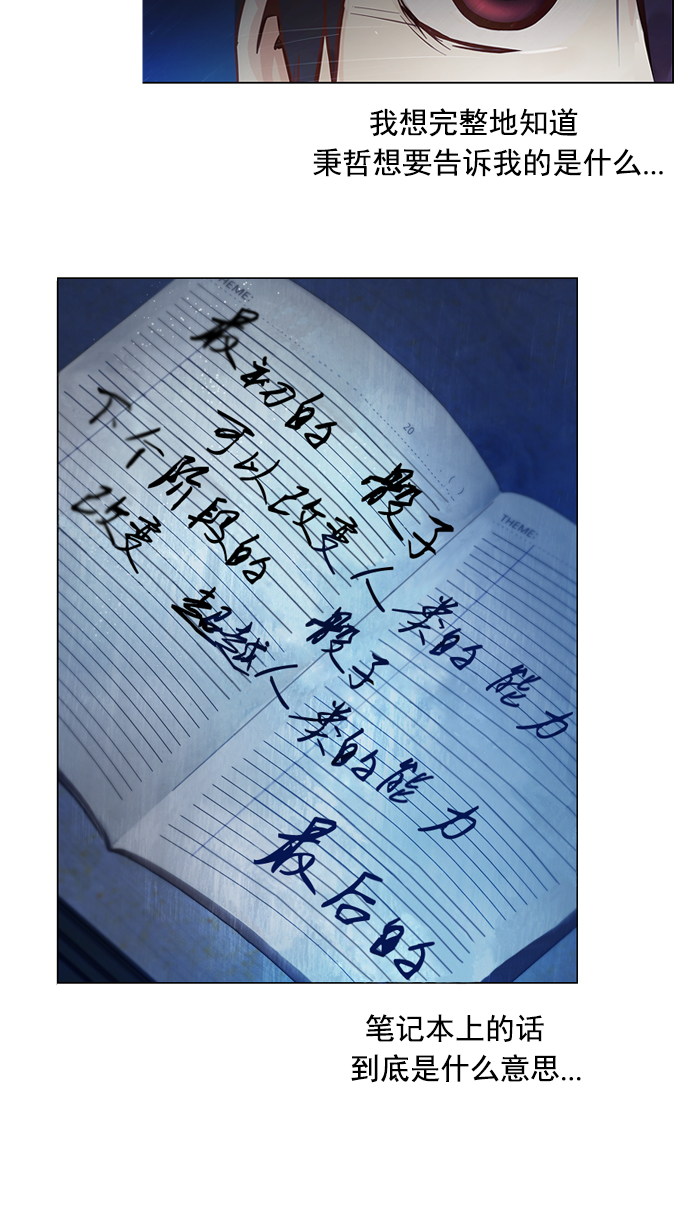 我想完整地知道
秉哲想要告诉我的是什么...
THEME:
最初的 骰子
可以改变人类的能力
20
( )
THEME:
下个阶段的 骰子
改变 超越人类的能力
最后的
笔记本上的话
到底是什么意思...